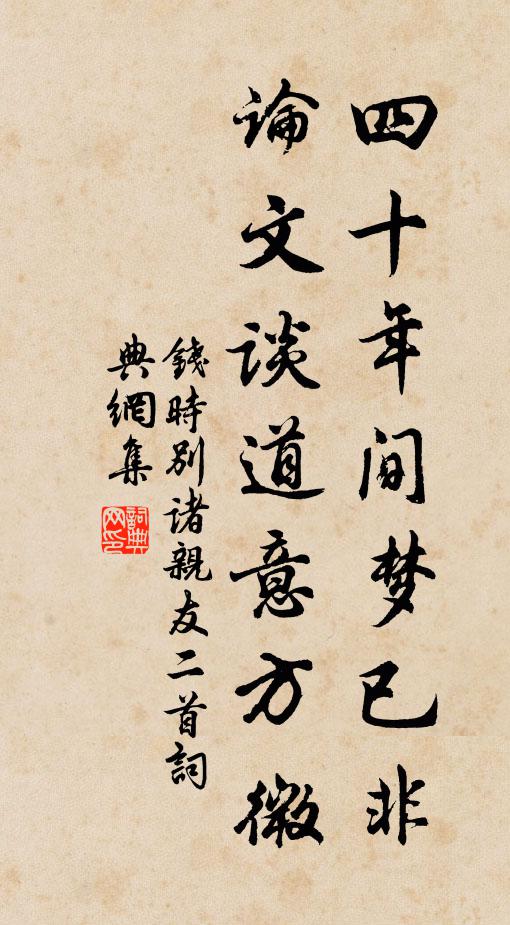 四十年间梦已非
論文谈道意方微
錢時别诸親友二首詞
典網集
詞典网印